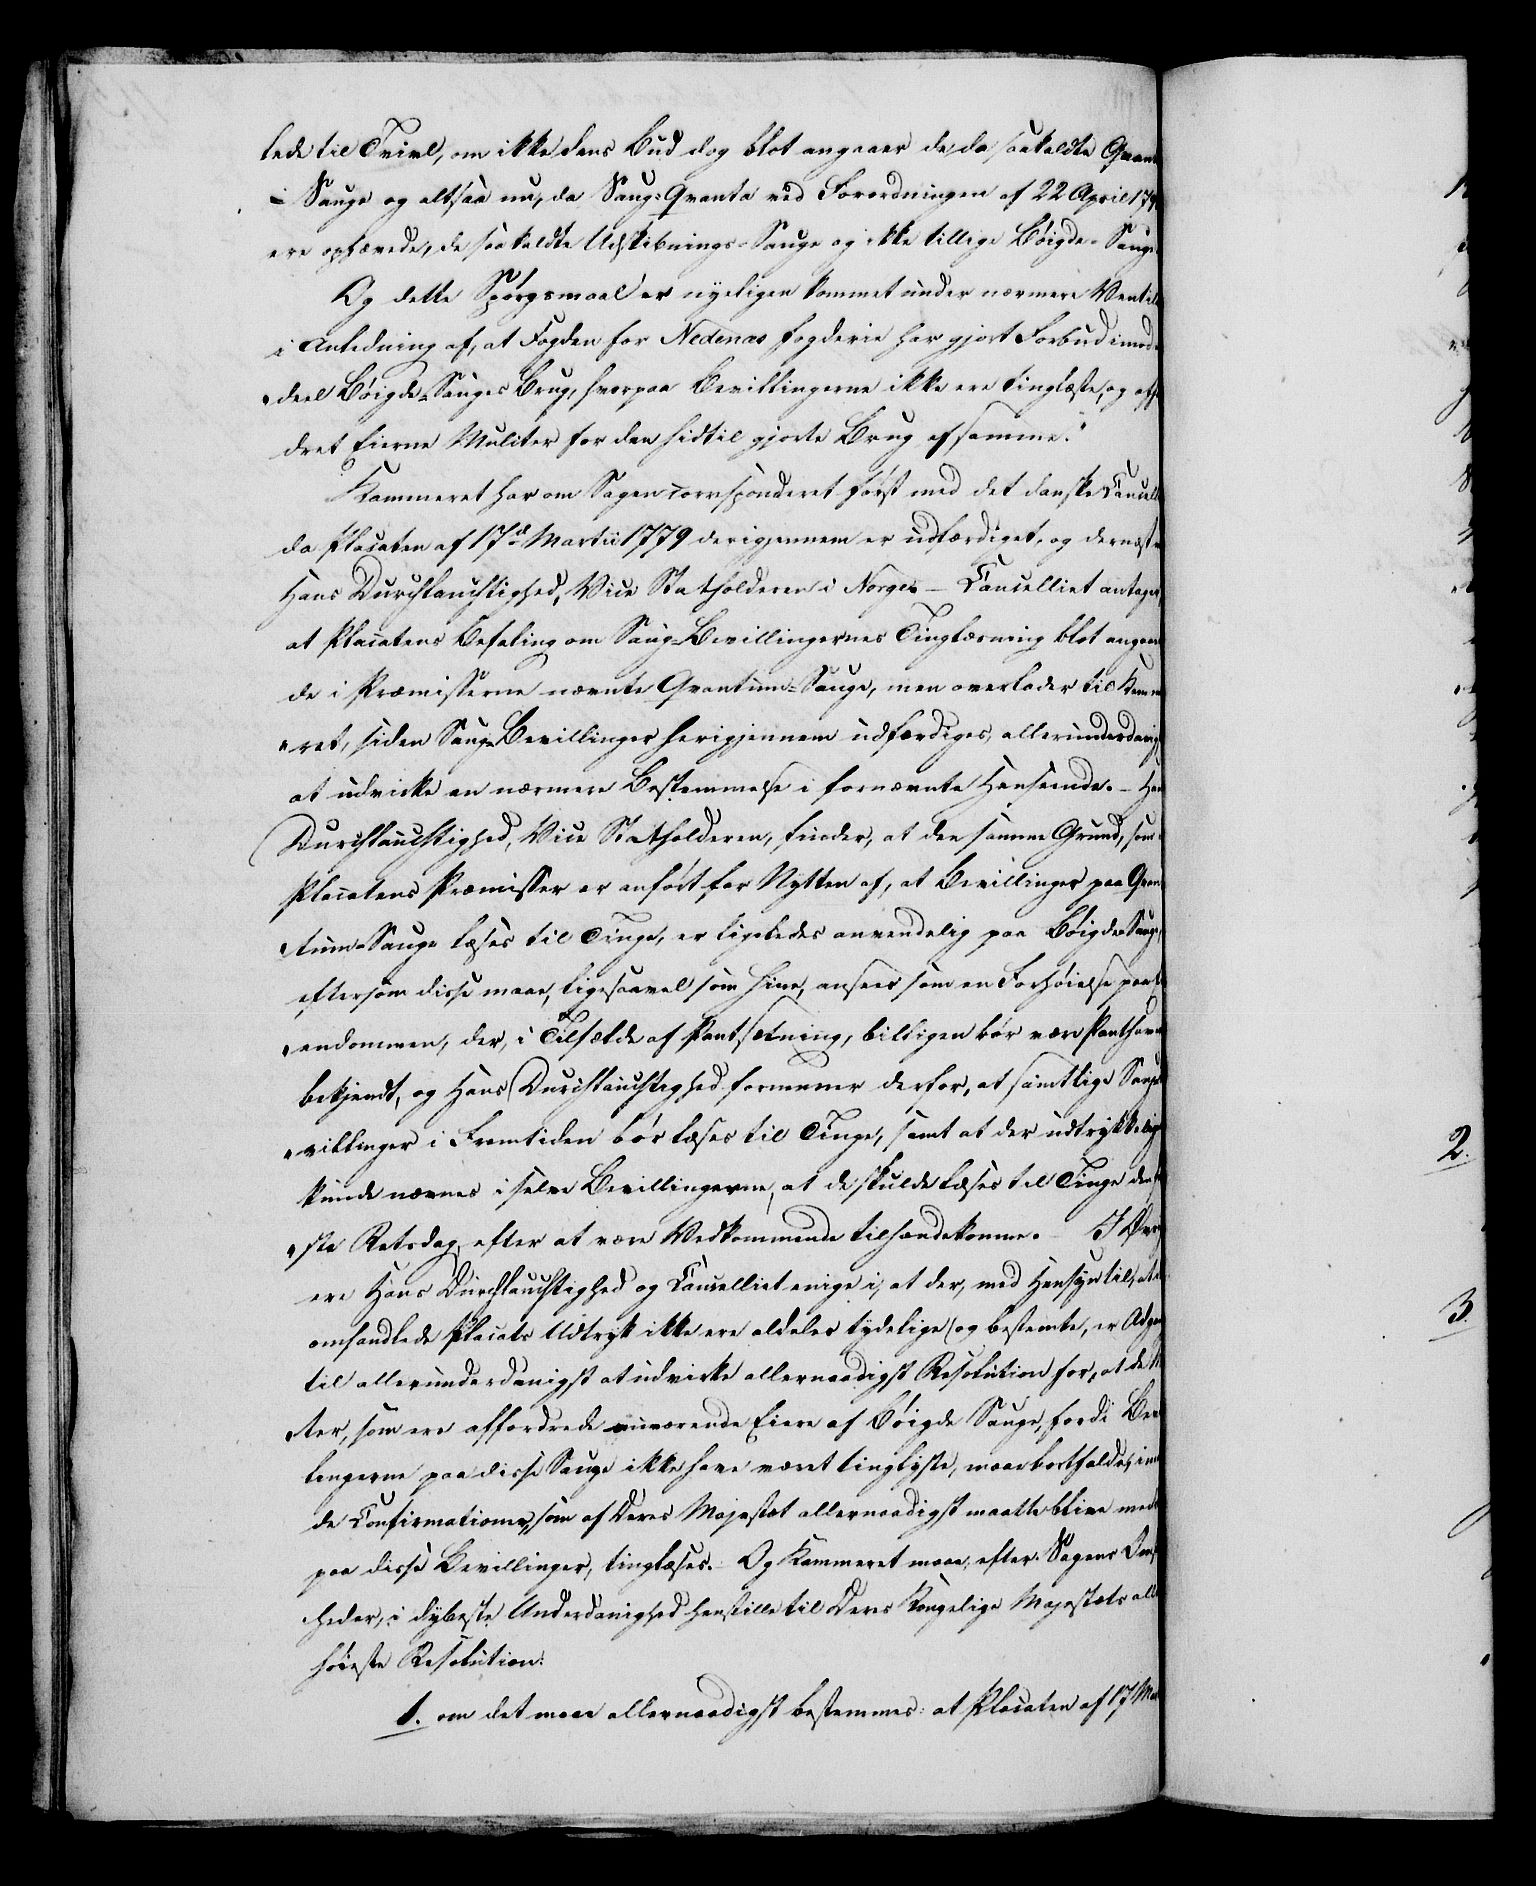 lede til Tvivl, om ikke dens Bud dog blot angaaer de da saakaldte Qvan
- Sauge og altsaa nu, da Saug-Qvanta ved Forordningen af 22 April 179
ere ophævede, de saakaldte Udskibnings-Sauge og ikke tillige Böigde-Sauge
Og dette Spörgsmaal er nyeligen kommet under nærmere Ventil
i Anledning af, at Fogden for Nedenæs Fogderie har gjort Forbud imod
deel Böigde-Sauges Brug, hvorpaa Bevillingerne ikke ere tinglæste, og aff
dret Eierne Mulcter for den hidtil gjorte Brug af samme.
Kammeret har om Sagen corresponderet först med det danske Cancell
da Placaten af 17d Martii 1779 derigjennem er udfærdiget, og dernæst
Hans Durchlauchtighed, Vice Statholderen i Norge. - Cancelliet antager,
at Placatens Befaling om Saug-Bevillingernes Tinglæsning blot angaae
de i Præmisserne nævnte Qvantum-Sauge, men overlader til Kam
ret, siden Saug-Bevillinger herigjennem udfærdiges, allerunderdanig
at udvirke en nærmere Bestemmelse i fornævnte Henseende. - Han
Durchlauchtighed, Vice Statholderen, finder, at den samme Grund, som
Placatens Præmisser er anfört for Nytten af, at Bevillinger paa Qvan
tum-Sauge læses til Tinge, er ligeledes anvendelig paa Böigde Sauge,
eftersom disse maae, ligesaavel som hine, ansees som en Forhöielse paa
endommen, der, i Tilfælde af Pantsætning, billigen bör være Panthaver
bekjendt, og Hans Durchlauchtighed formener derfor, at samtlige Saug
villinger i Fremtiden bör læses til Tinge, samt at der udtrykkelig
kunde nævnes i selve Bevillingerne, at de skulde læses til Tinge den
ste Retsdag, efter at være Vedkommende tilhændekomne. - I Övrig
ere Hans Durchlauchtighed og Cancelliet enige i, at der, med Hensyn til, at
omhandlede Placats Udtryk ikke ere aldeles tydelige og bestemte, er Adga
til allerunderdanigst at udvirke allernaadigst Resolution for, at de M
ter, som ere affordrede nuværende Eiere af Böigde Sauge, fordi Bev
lingerne paa disse Sauge ikke have været tinglyste, maae bortfalde,
de Confirmationer, som af Deres Majestæt allernaadigst maatte blive med
paa disse Bevillinger, tinglæses. - Og Kammeret maae, efter Sagens Om
heder, i dybeste Underdanighed henstille til Deres Kongelige Majestæts all
höieste Resolution:
1. om det maae allernaadigst bestemmes: at Placaten af 17 Ma
2.
3.